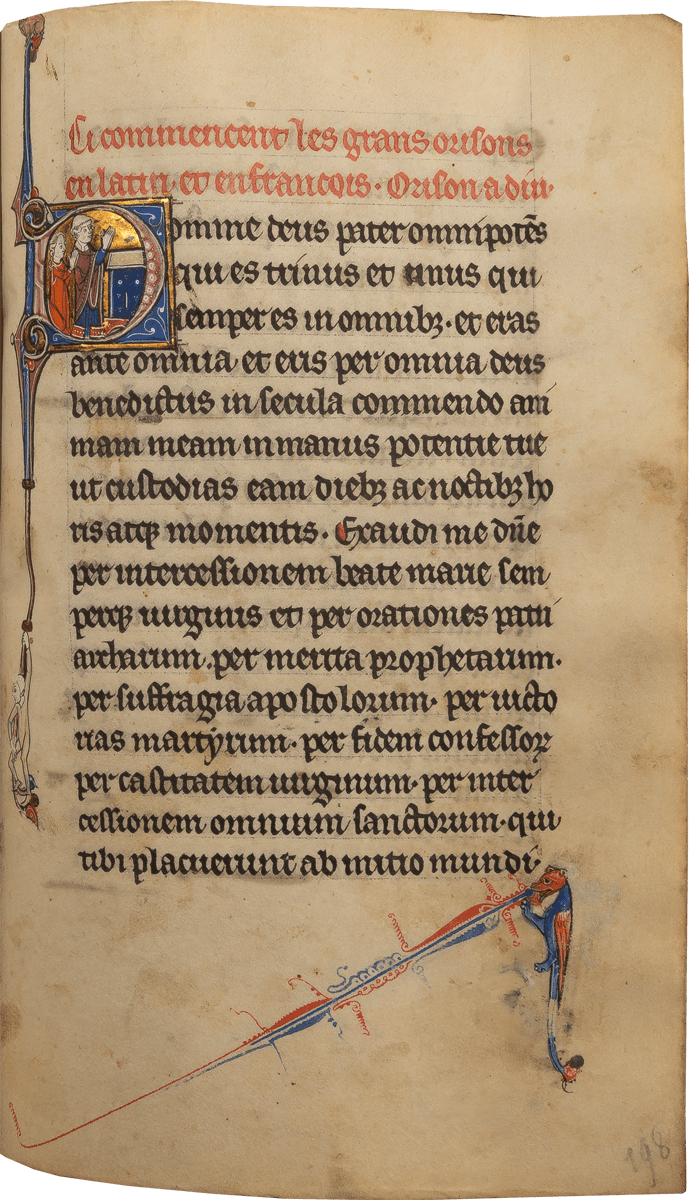 Ci commencent les grans orisons
en latin · et en francois · Orison a diu·
Domine deus pater omnipotẽs
qui es trinus et unus qui
semper es in omnibꝫ · et eras
ante omnia et eris per omnia deus
benedictus in secula commendo ani
mam meam in manus potentie tue
ut custodias eam diebꝫ ac noctibꝫ ho
ris atqꝫ momentis · Exaudi me dñe
per intercessionem beate marie sem
perqꝫ uirginis et per orationes patri
archarum · per merita prophetarum ·
per suffragia apostolorum · per uicto
rias martyrum · per fidem confessoꝝ
per castitatem uirginum · per inter
cessionem omnium sanctorum · qui
tibi placuerunt ab initio mundi ·
198